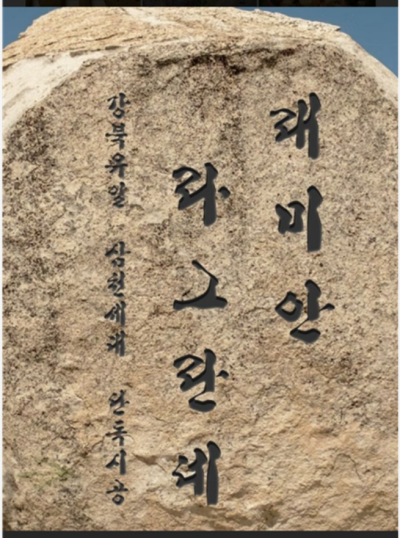 래미안
라그란데
강북유일 삼천세대 단독시공